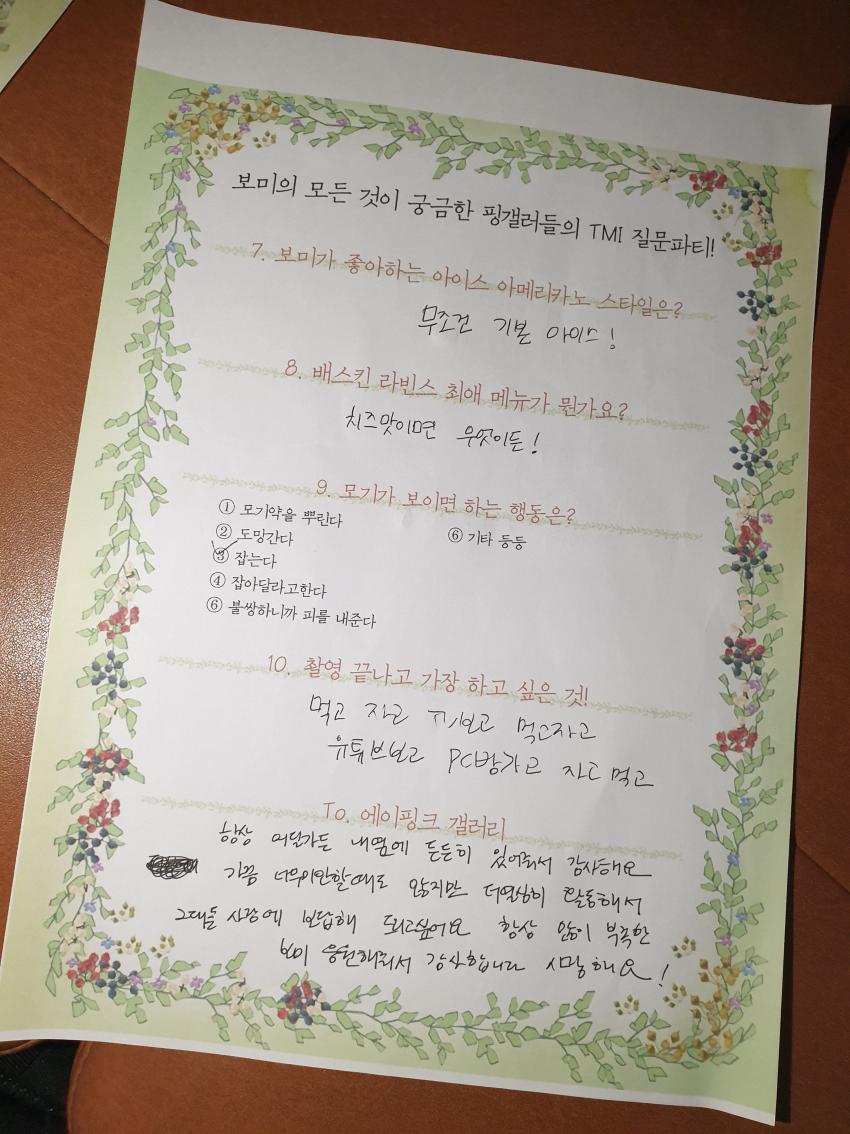 보미의 모든 것이 궁금한 핑갤러들의 TMI 질문파티!
7. 보미가 좋아하는 아이스 아메리카노 스타일은?
무조건 기본 아이스!
8. 배스킨 라빈스 최애 메뉴가 뭔가요?
치즈맛이면 무엇이든!
9. 모기가 보이면 하는 행동은?
① 모기약을 뿌린다
② 도망간다
③ 잡는다
④ 잡아달라고한다
⑥ 불쌍하니까 피를 내준다
⑥ 기타 등등
10. 촬영 끝나고 가장 하고 싶은 것!
먹고 자고 TV보고 먹고자고
유튜브보고 PC방가고 자고 먹고
To. 에이핑크 갤러리
항상 어딜가든 내옆에 든든히 있어줘서 감사해요
가끔 너무미안할때도 많지만 더열심히 활동해서
그대들 사랑에 보답해 드리고싶어요 항상 많이 부족한
보미 응원해줘서 감사합니다 사랑해요!